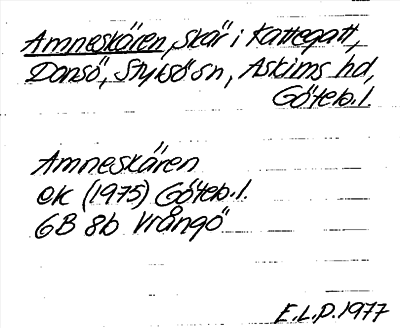 Amneskären, skär i Kattegatt,
Donsö, Styrsö sn, Askims hd,
Göteb. l.
Amneskären
ek (1975) Göteb. l.
6B 8b Vrångö
E.L.P. 1977